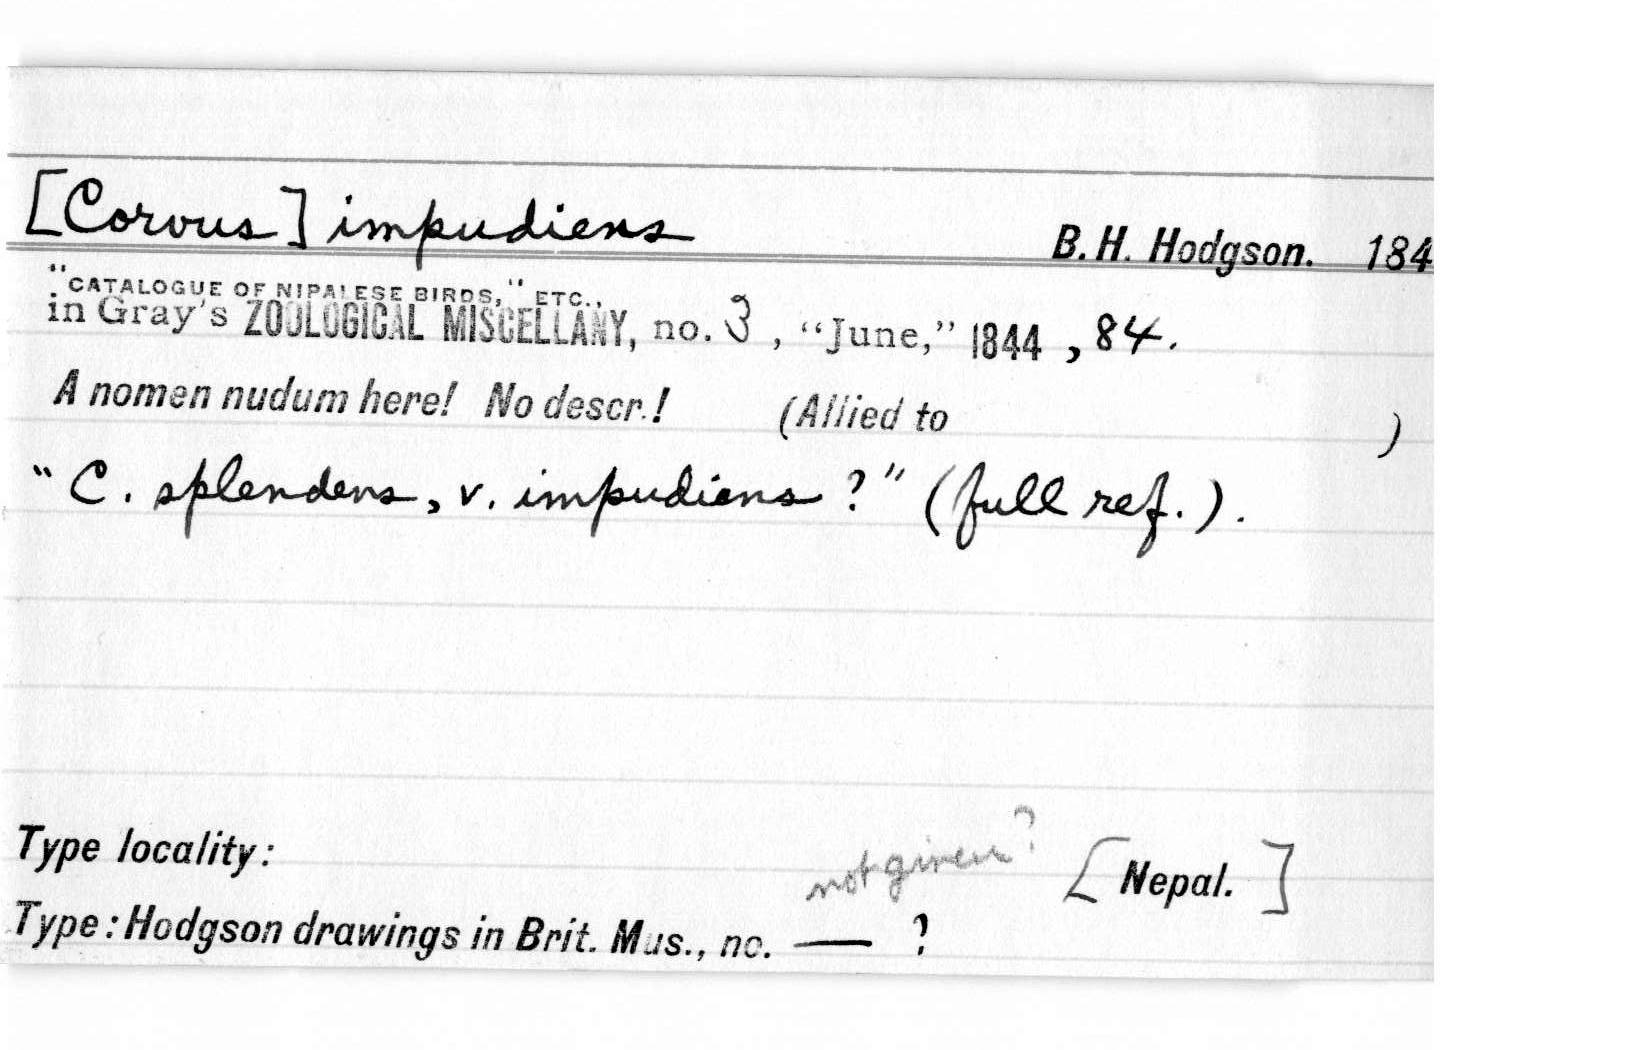 [Corvus] impudiens B.H. Hodgson. 184
"CATALOGUE OF NIPALESE BIRDS," ETC.,
in Gray's ZOOLOGICAL MISCELLANY, no. 3, "June," 1844, 84.
A nomen nudum here! No descr.! (Allied to )
"C. splendens, v. impudiens?" (full ref.).
not given?
Type locality: [Nepal.]
Type: Hodgson drawings in Brit. Mus., no. — ?